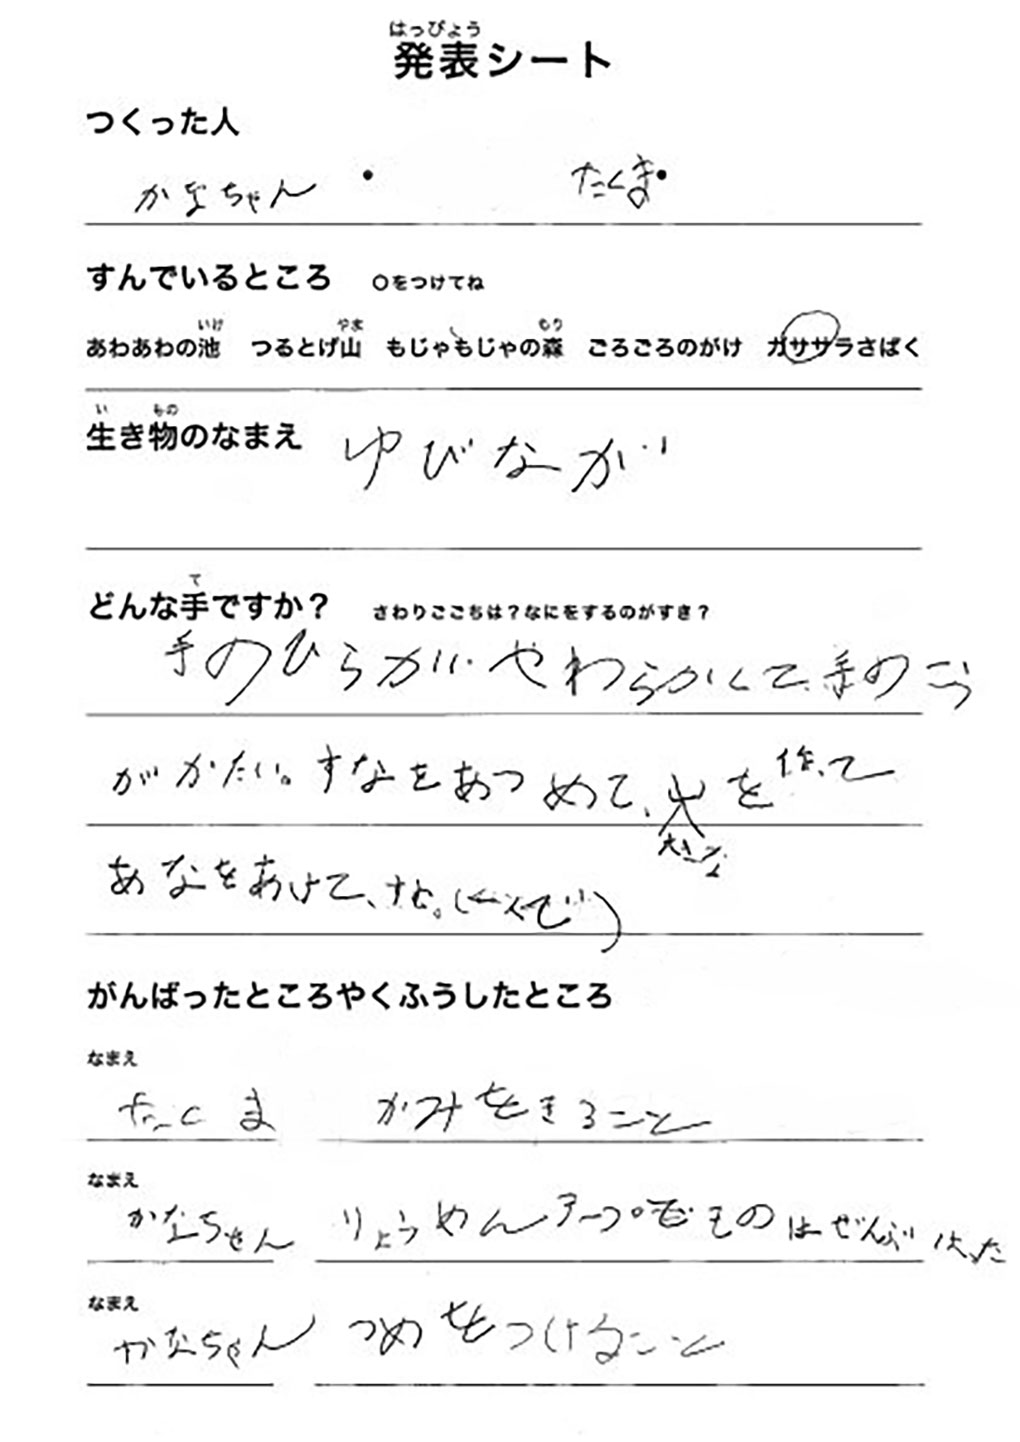 はっぴょう
発表シート
つくった人
かなちゃん ・ たくま・
すんでいるところ ○をつけてね
いけ やま もり
あわあわの池 つるとげ山 もじゃもじゃの森 ごろごろのがけ ガササラさばく
い もの
生き物のなまえ ゆびなが
て
どんな手ですか？ さわりごこちは？なにをするのがすき？
手のひらが、やわらかくて、手のこう
がかたい。すなをあつめて、山を作って
大きな
あなをあけて、
がんばったところやくふうしたところ
なまえ
たくま かみをきること
なまえ
かなちゃん りょうめんテープ ものはぜんぶ
なまえ
かなちゃん つめをつけること